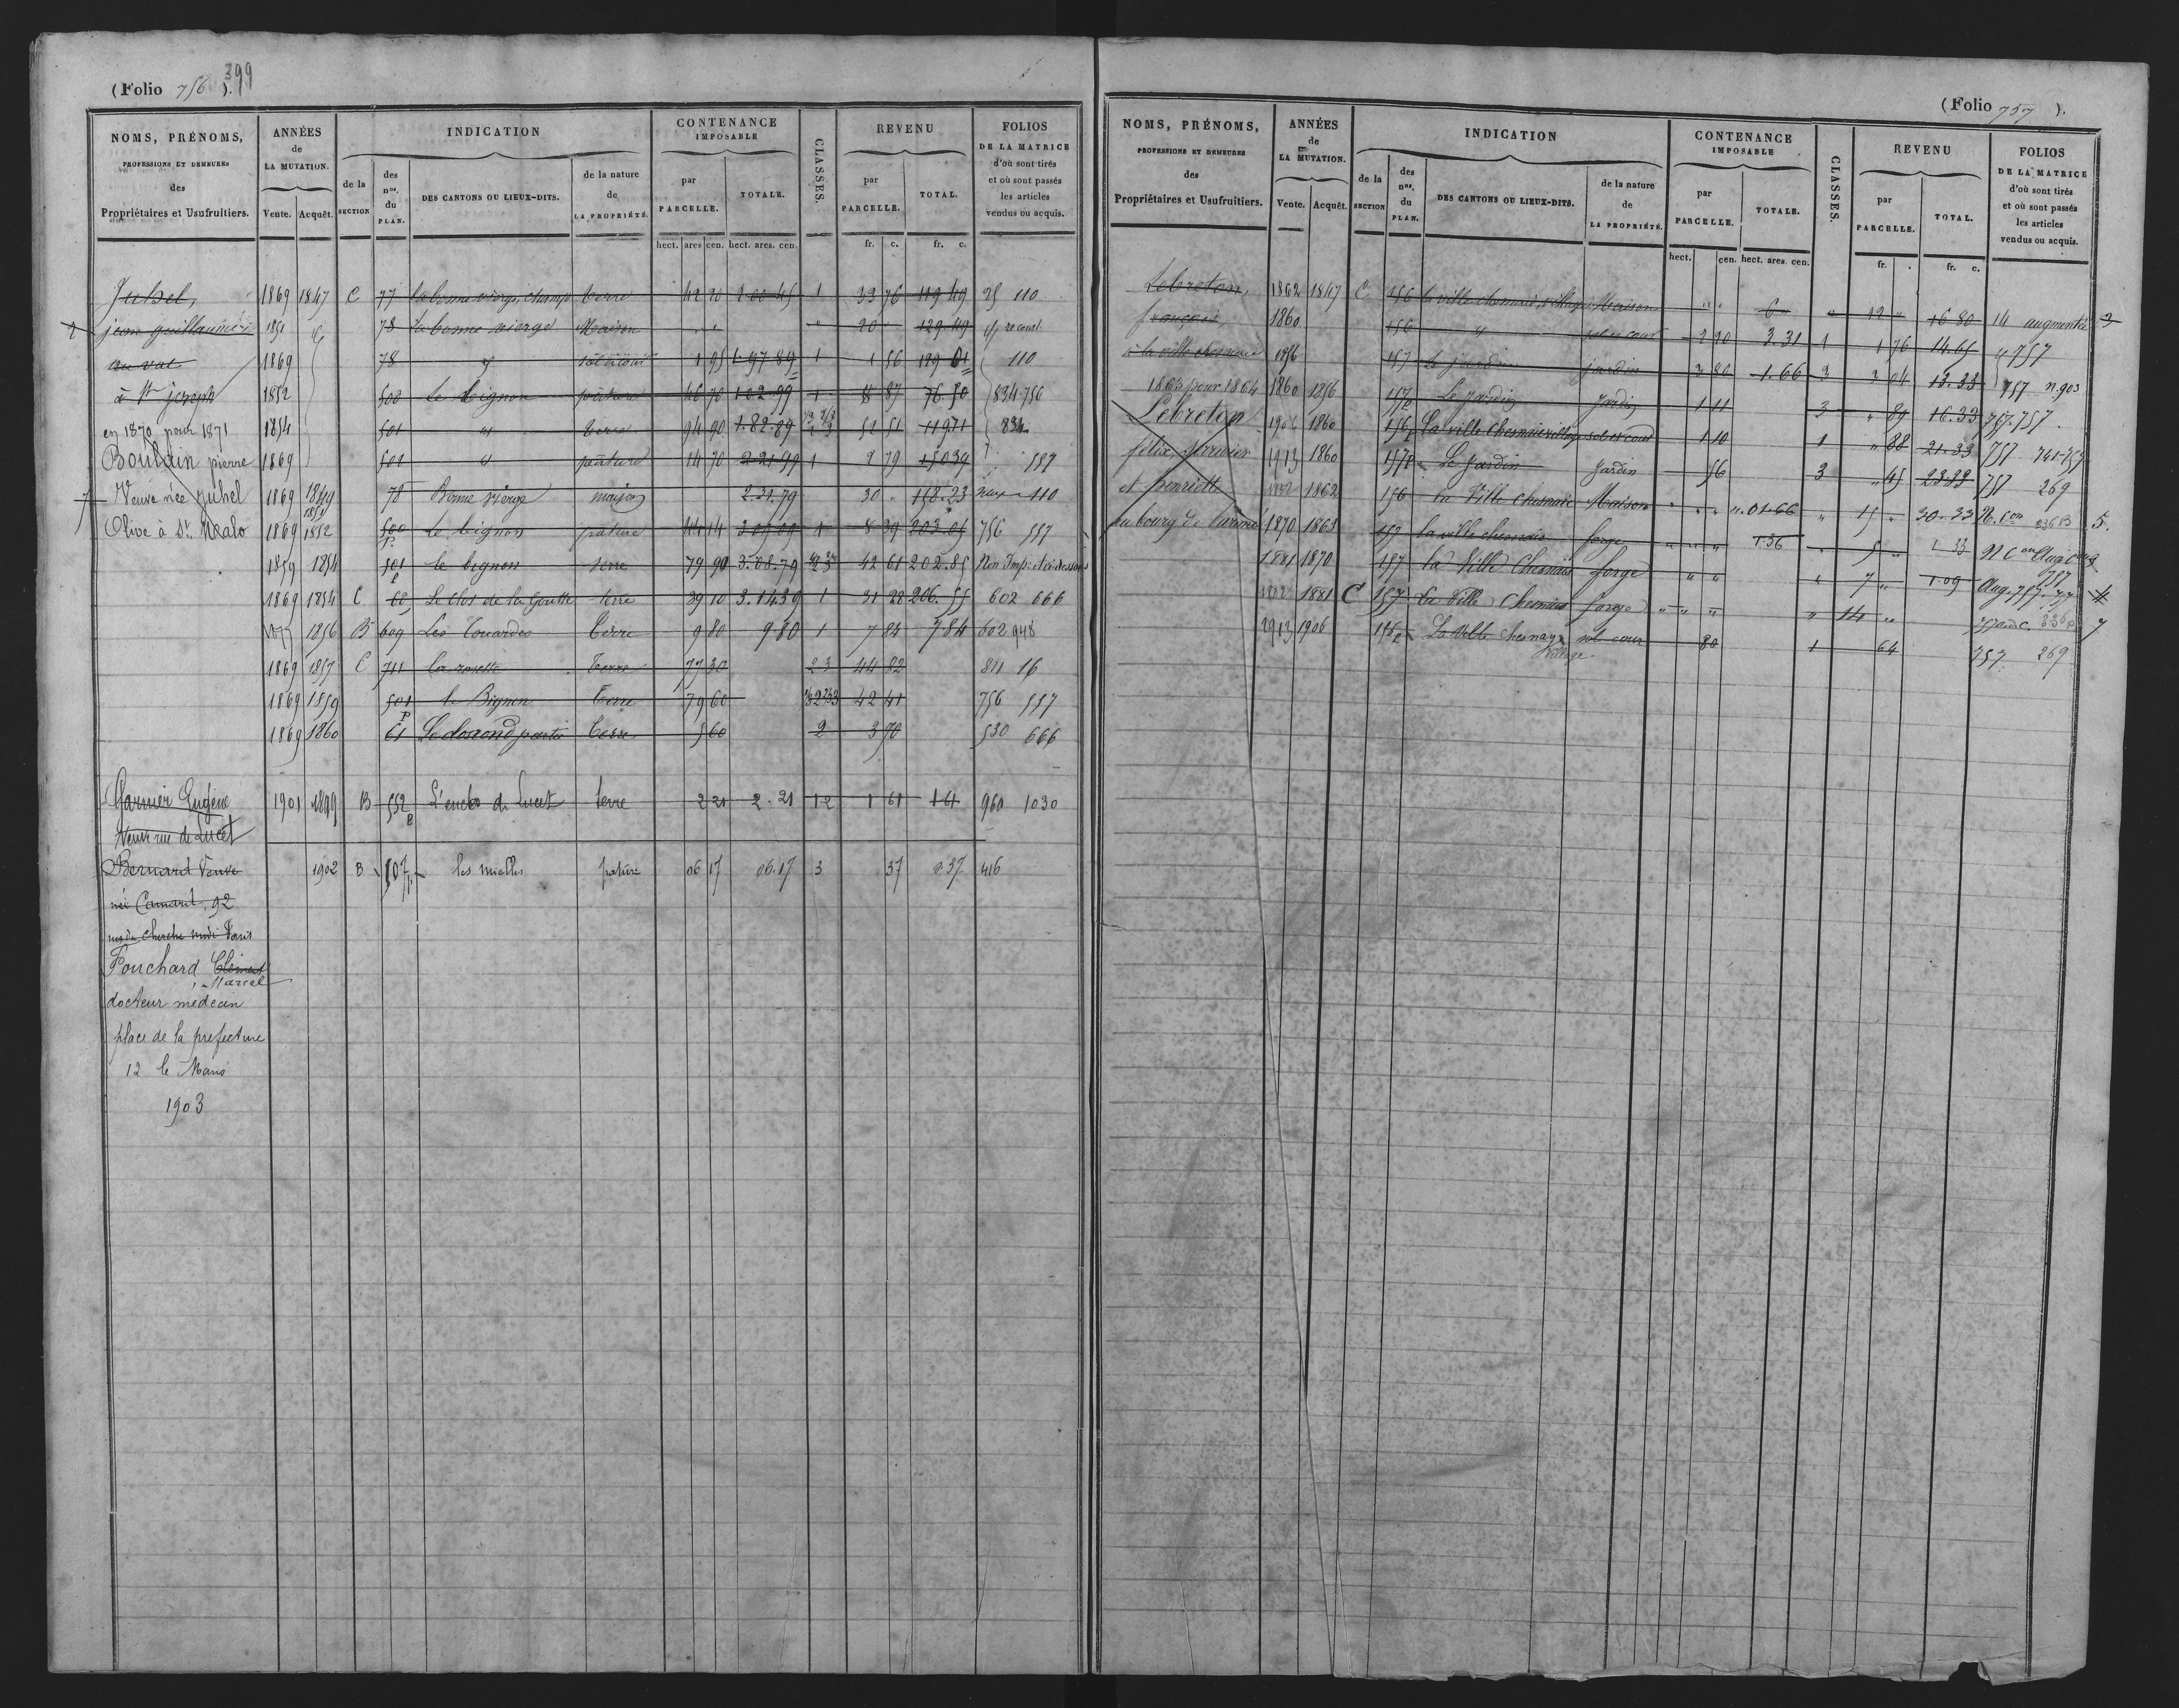 399
(Folio 756 ).
NOMS, PRÉNOMS, PROFESSIONS ET DEMEURES des Propriétaires et Usufruitiers.
ANNÉES de LA MUTATION. Vente. Acquêt.
INDICATION de la SECTION des nos. du PLAN. DES CANTONS OU LIEUX-DITS. de la nature de LA PROPRIÉTÉ.
CONTENANCE IMPOSABLE par PARCELLE. TOTALE.
CLASSES.
REVENU par PARCELLE. TOTAL.
FOLIOS DE LA MATRICE d'où sont tirés et où sont passés les articles vendus ou acquis.
hect. ares cen. hect. ares. cen. fr. c. fr. c.
Juhel, 1869 1847 C 77 la bonne vierge, champ terre 42 20 2 00 45 1 33 76 119 49 25 110
jean guillaume 1851 78 la bonne vierge Maison " " " 20 " 129.49
au val 1869 78 " sol et cour 1 95 1.97 89 1 1 56 129 01 110
à St joseph 1852 500 Le Bignon pâture 46 70 1.02.99 1 8 87 76.50 834-756
en 1870 pour 1871 1854 501 " terre 94 90 1.82.89 52 51 119.71 834
Boulain pierre 1869 501 " pâture 14 70 2 21 99 1 2 79 150 39 557
Veuve née Juhel 1869 1849 78 Bonne vierge maison 2.31.79 30 " 158.23 110
Olive à St. Malo 1869 1852 500 p. Le bignon pature 44 14 1 8 39 203 06 756 557
1859 1854 501 p le bignon terre 79 90 3.08.79 42 61 202.85
1869 1854 C 62 Le Clos de la Goutte terre 39 10 3.14.39 1 31 28 206.55 602 666
1856 B 609 Les Touardes terre 9 80 9 80 1 7 84 7 84 602 948
1869 1857 C 711 la rosette terre 77 30 2 3 44 82 811 16
1869 1859 501 p le Bignon terre 79 60 42 41 756 557
1869 1860 61 Le clos rond partie terre 5 60 2 3 70 530 666
Garnier Eugène 1901 1899 B 552 p L'enclos de Lucet terre 2 21 2.21 1 2 1 61 1 61 960 1030
Veuve rue de Lucet
Bernard Veuve 1902 B 507 p les mielles pature 06 17 06.17 3 37 0 37 416
née Camard, 92
rue du Cherche midi Paris
Fouchard Clément
Marcel
docteur médecin
place de la prefecture
12 le Mans
1903
(Folio 757 ).
NOMS, PRÉNOMS, PROFESSIONS ET DEMEURES des Propriétaires et Usufruitiers.
ANNÉES de LA MUTATION. Vente. Acquêt.
INDICATION de la SECTION des nos. du PLAN. DES CANTONS OU LIEUX-DITS. de la nature de LA PROPRIÉTÉ.
CONTENANCE IMPOSABLE par PARCELLE. TOTALE.
CLASSES.
REVENU par PARCELLE. TOTAL.
FOLIOS DE LA MATRICE d'où sont tirés et où sont passés les articles vendus ou acquis.
hect. cen. hect. ares. cen. fr. fr. c.
Lebreton, 1862 1847 C 156 la ville chesnais, village Maison " " 6 " 12 " 16 80 14 augmentée 3
françois 1860 156 " sol et cour 2 20 3.31 1 1 76 14.65 757
à la ville chesnais 1856 157 Le jardin jardin 3 80 1.66 3 3 04 13.33 757 n.903
1863 pour 1864 1860 1856 157 p Le Jardin Jardin 1 11 3 " 89 16.33 757.757
Lebreton 1906 1860 156 p La ville Chesnais village sol et cour 1 10 1 " 88 21.33 757 741-759
félix 1913 1860 157 p Le Jardin Jardin 56 3 " 45 23.33 757 269
et henriette 1862 156 La Ville Chesnais Maison " " " " 01.66 " 15 " 30.33 N. Con 236 B 5.
au bourg de Paramé 1870 1863 157 la ville chesnais forge " " " 1.36 " 5 " 1 33
1881 1870 157 la Ville Chesnais forge " " " 7 " 1.09 Aug. 757
1881 C 157 La Ville Chesnais forge " " " " 14 " 7
1913 1906 156 p La Ville Chesnaye sol cour 80 1 64 757 269
Village